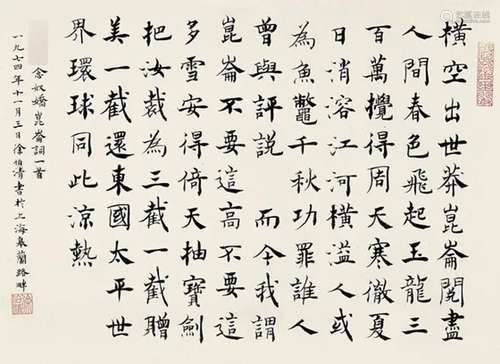 橫空出世莽崑崙閱盡
人間春色飛起玉龍三
百萬攪得周天寒徹夏
日消溶江河橫溢人或
為魚鼈千秋功罪誰人
曾與評說 而今我謂
崑崙不要這高不要這
多雪安得倚天抽寶劍
把汝裁為三截一截贈
美一截還東國太平世
界環球同此涼熱
念奴嬌崑崙詞一首
一九七四年十一月三日徐伯清書於上海皋蘭路畔